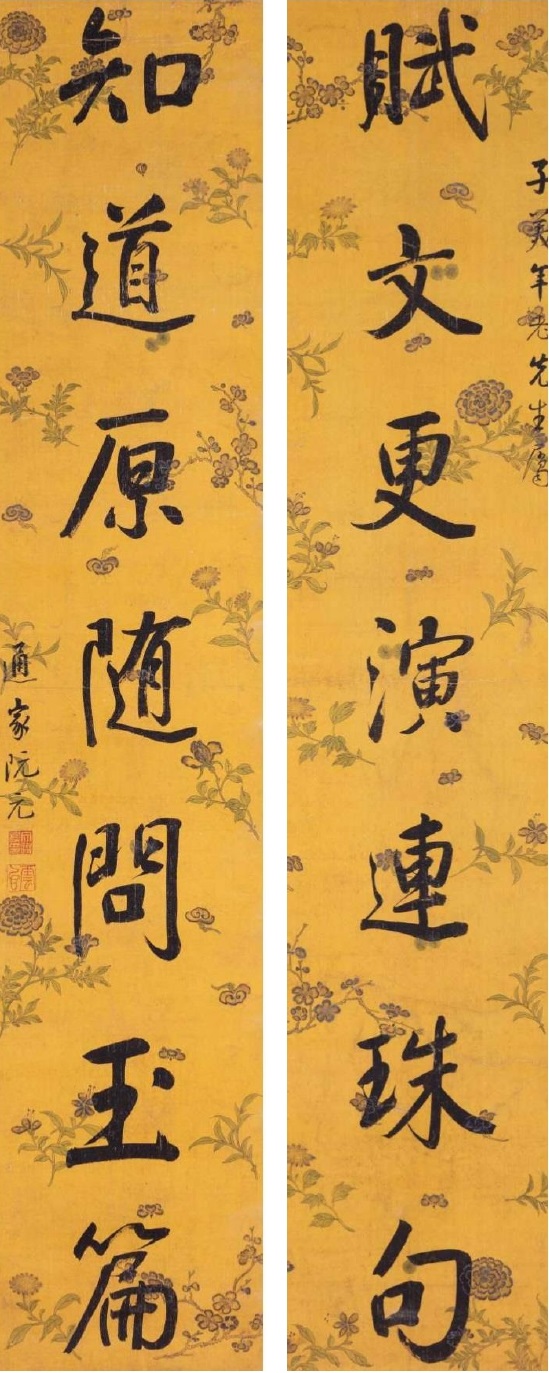 子美年老先生屬
賦文更演連珠句
知道原随問玉篇
通家阮元